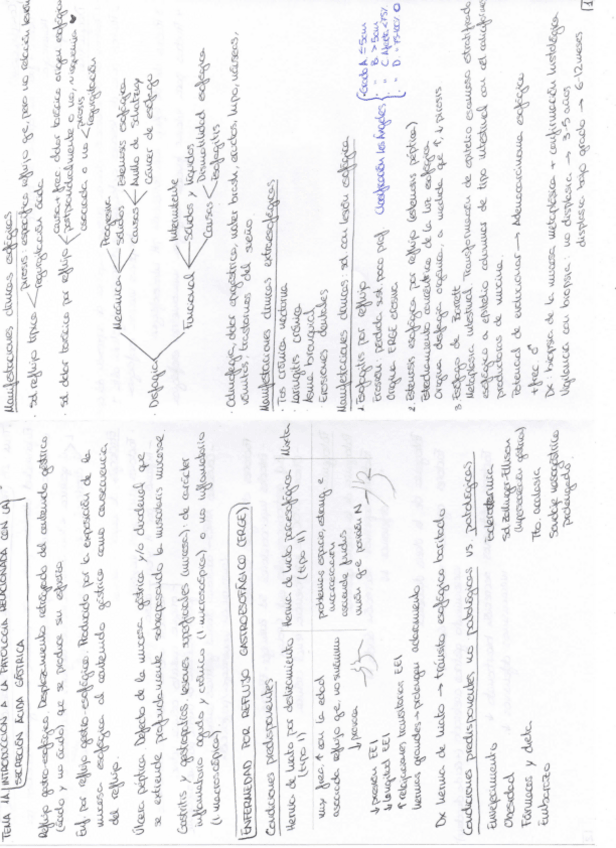 TEMA 1A INTRODUCCIÓN A LA PATOLOGÍA RELACIONADA CON LA
SECRECIÓN ÁCIDA GÁSTRICA
Reflujo gastro-esofágico Desplazamiento retrógrado del contenido gástrico
(ácido y no ácido) que se produce sin esfuerzo
Enf por reflujo gastro esofágico. Producida por la exposición de la
mucosa esofágica al contenido gástrico como consecuencia
del reflujo.
Úlcera péptica Defecto de la mucosa gástrica y/o duodenal que
se extiende profundamente sobrepasando la muscularis mucosae.
Gastritis y gastropatías, lesiones superficiales (mucosa) de carácter
inflamatorio agudo y crónico (1 microscópica) o no inflamatorio
(1 macroscópica)
ENFERMEDAD POR REFLUJO GASTROESOFÁGICO (ERGE)
Condiciones predisponentes
Hernia de hiato por deslizamiento Hernia de hiato paraesofágica Mixta
(tipo I) (tipo II)
muy frec ↑ con la edad
asociada reflujo
↓ presión EEI
↓ longitud EEI
↑ relajaciones transitorias EEI
hernias grandes → prolongan aclaramiento
problemas espacio,
asciende fundus
unión que posición N
Dx hernia de hiato → tránsito esofágico baritado
Condiciones predisponentes no patológicas vs patológicas
Envejecimiento Esclerodermia
Obesidad Sd Zollinger-Ellison
Fármacos y dieta (hipersecreción gástrica)
Embarazo Tto. acalasia
Sondaje nasogástrico
prolongado.
1
Manifestaciones clínicas esofágicas
• Sd reflujo típico pirosis específica reflujo
regurgitación ácida
• sd dolor torácico por reflujo causa + frec dolor torácico origen esofágico
postprandialmente o no,
asociada o no pirosis
regurgitación
• Disfagia
Mecánica
Progresiva
sólidos
causas Estenosis esofágica
Anillo de Schatzky
Cáncer de esófago
Funcional
Intermitente
sólidos y líquidos
causa Dismotilidad esofágica
Esofagitis
• Odinofagia, dolor epigástrico, eructos, hipo, náuseas,
vómitos, trastornos del sueño.
Manifestaciones clínicas extraesofágicas
• Tos crónica nocturna
• Laringitis crónica
• Asma bronquial
• Erosiones dentales
Manifestaciones clínicas sd con lesión esofágica
1. Esofagitis por reflujo
Erosión pérdida sust. poco prof Clasificación Los Ángeles
Grado A ≤ 5mm
" B > 5mm
" C Afecta <75%
" D = 75-100%
Origina ERGE erosiva
2. Estenosis esofágica por reflujo (estenosis péptica)
Estrechamiento concéntrico de la luz esofágica
Origina disfagia orgánica, a medida que ↑, ↓ pirosis
3. Esófago de Barrett
Metaplasia intestinal. Transformación de epitelio escamoso estratificado
esofágico a epitelio columnar de tipo intestinal con cél caliciformes
productoras de mucina.
Potencial de evolucionar → Adenocarcinoma esofágico
+ frec ♂
Dx: biopsia de la mucosa metaplásica + confirmación histológica
Vigilancia con biopsia: no displasia → 3-5 años
displasia bajo grado → 6-12 meses